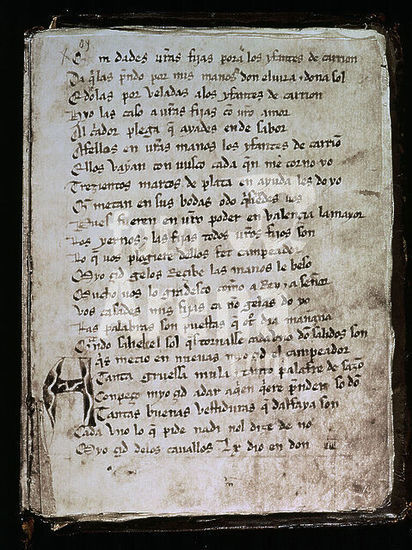 E m dades vr̃as fijas pora los yfantes de carrion
Daq̃ las p̃ndo por mis manos don eluira & dona sol
E dolas por veladas alos yfantes de carrion
Hyo las caso a vr̃as fijas cõ vr̃o amor
Al c̃ador plega q̃ ayades ende sabor
Afellos en vr̃as manos los yfantes de carriõ
Ellos vayan con uusco ca daq̃n me torno yo
Trezientos marcos de plata en ayuda les do yo
Q̃ metan en sus bodas odo q̃sieredes uos
Pues fueren en vr̃o poder en valençia la mayor
Los yernos & las fijas todos vr̃os fijos son
Lo q̃ uos plogiere dellos fet campeador
Myo çid gelos Reçibe las manos le beso
Mucho uos lo gradesco como a Rey & a señor
Vos casades mis fijas ca no gelas do yo
Las palabras son puestas q̃ ot̃ dia mañana
Quãdo salie el sol q̃s tornasse cada vno dõ salidos son
Aq̃s metio en nueuas myo çid el campeador
Tanta gruessa mula & tãto palafre de sazõ
Conpeço myo çid adar aq̃en q̃ere p̃nder so dõ
Tantas buenas vestiduras q̃ dalfaya son
Cada vno lo q̃ pide nadi nol dize de no
Myo çid delos cauallos Lx dio en don